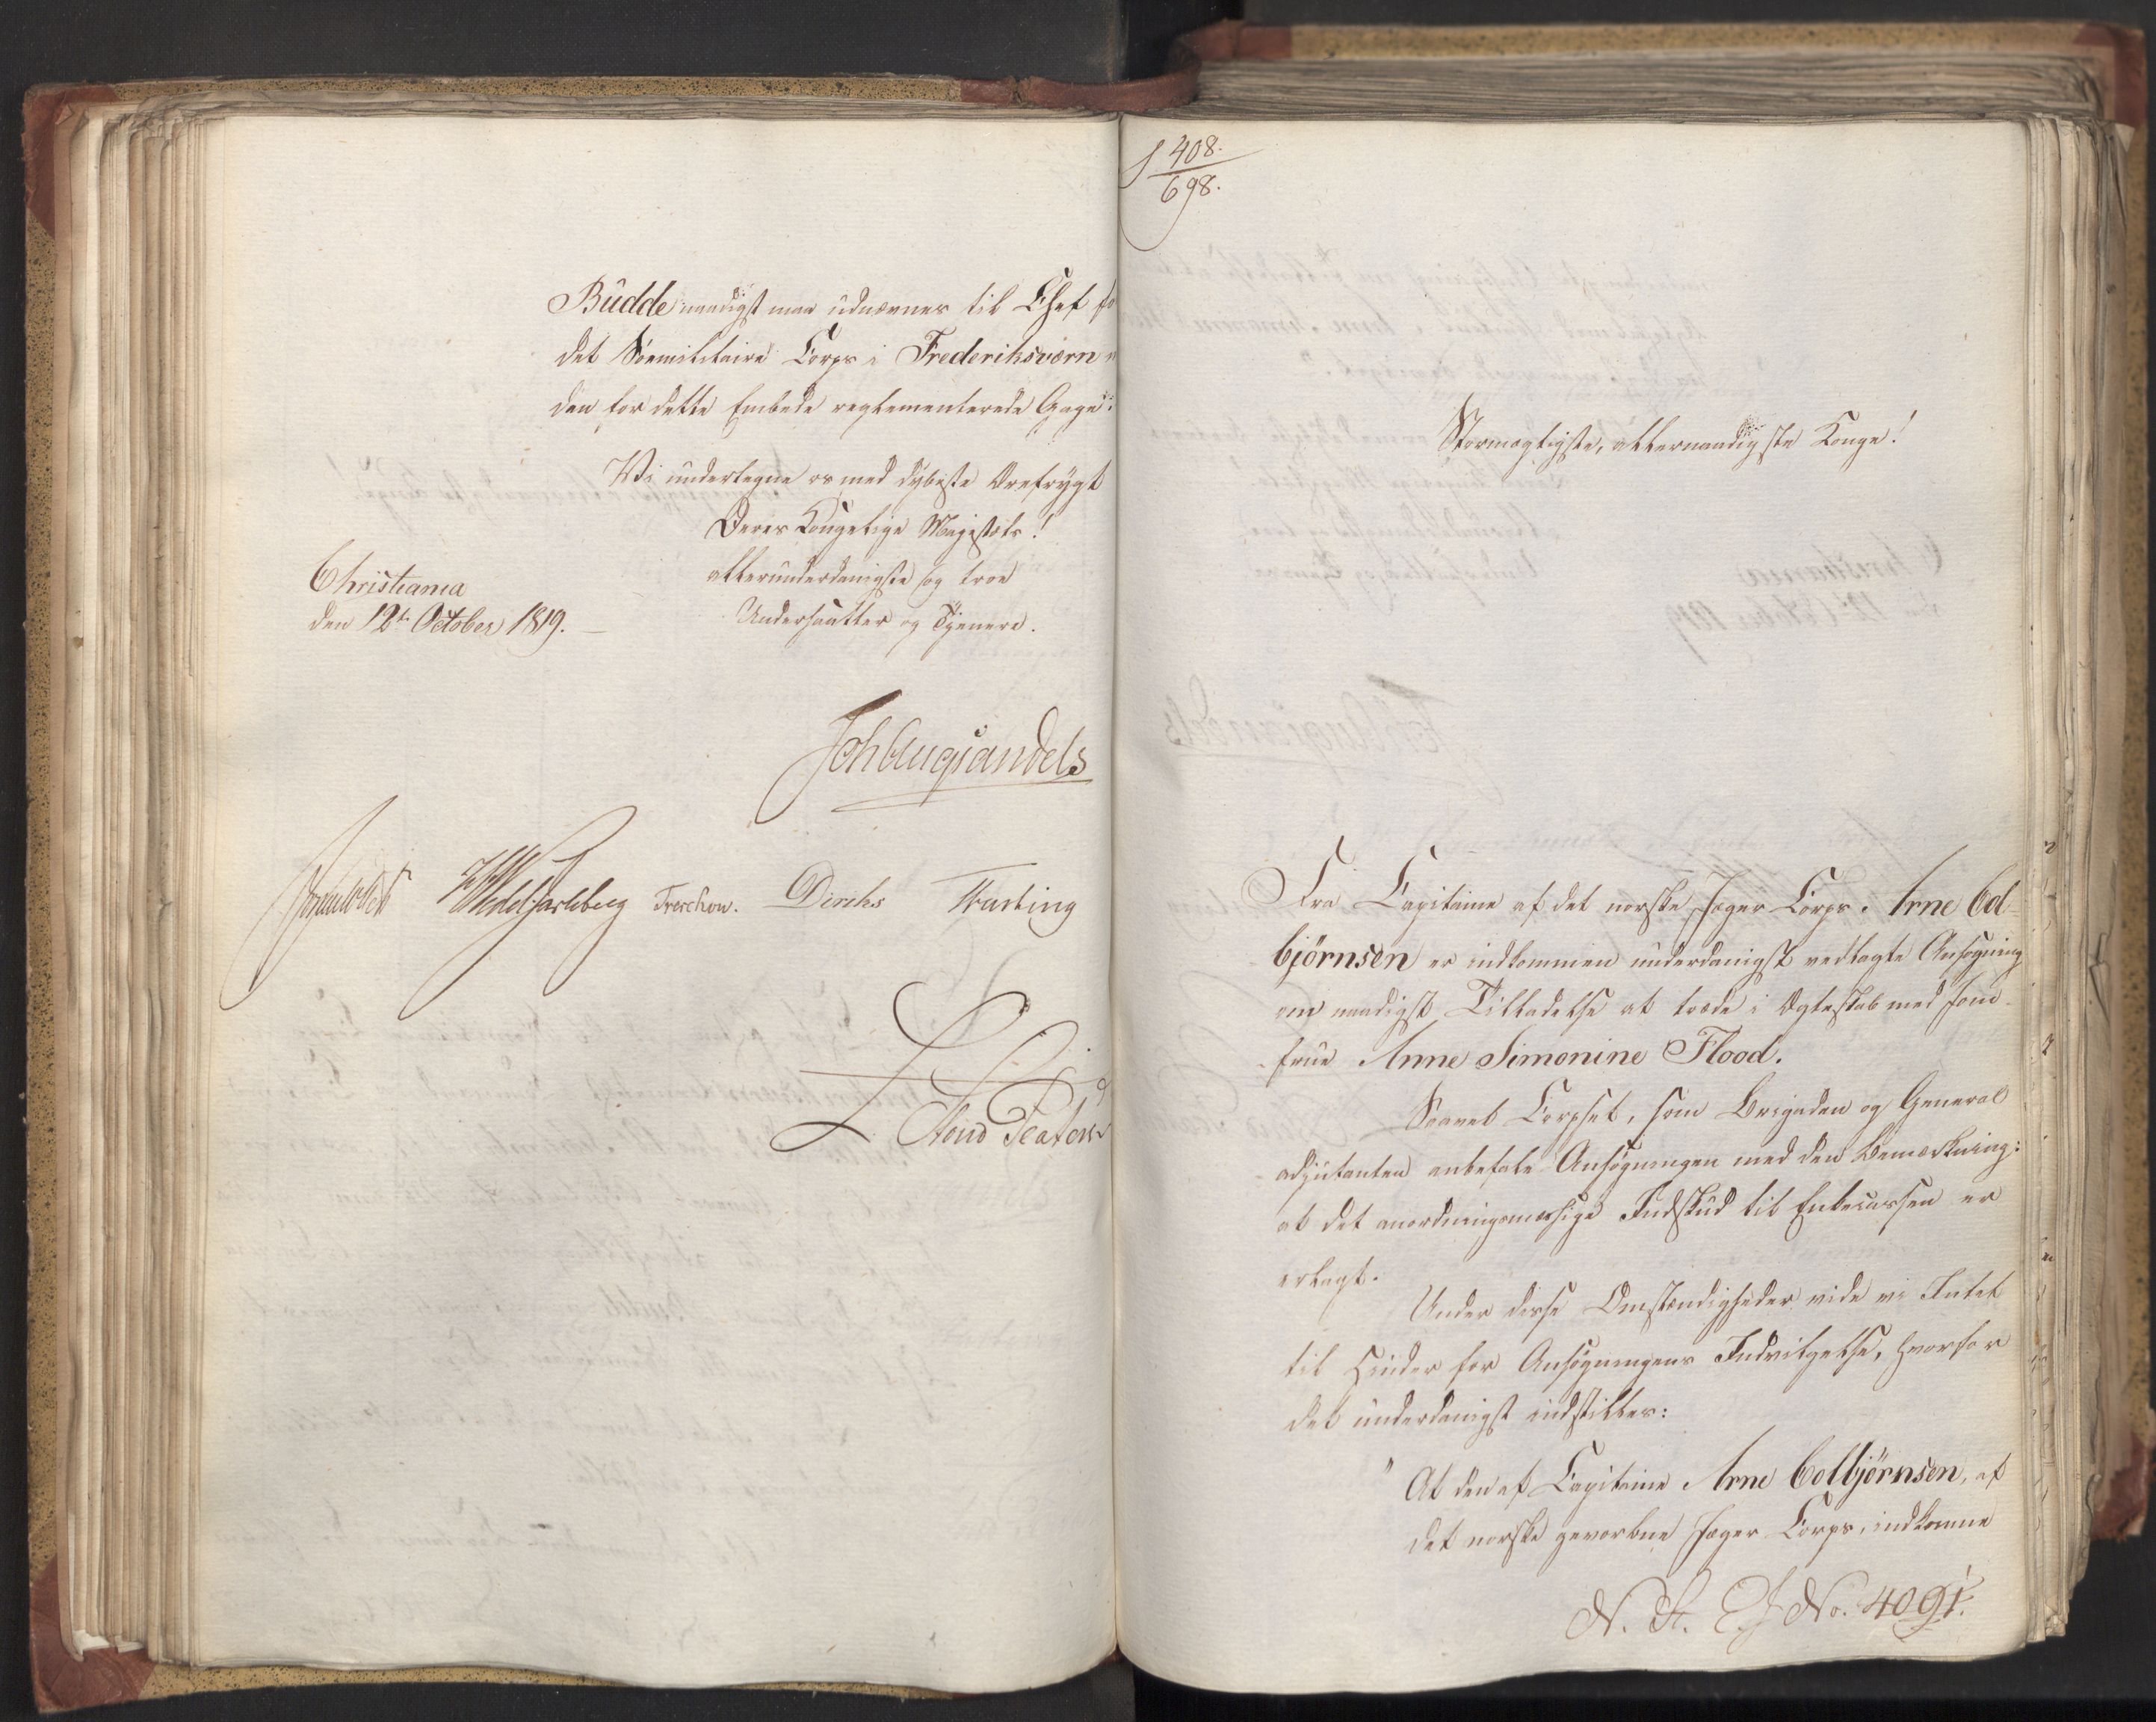 Büdde naadigst maa udnævnes til Chef fo
det Søemilitaire Corps i Frederiksværn
den for dette Embede reglementerede Gage:
Vi undertegne os med dybeste Ærefrygt
Deres Kongelige Majestæts!
allerunderdanigste og troe
Undersaatter og Tjenere.
Christiania
den 12te October 1819.
Joh Aug Sandels
Sommerhielm HWedel Jarlsberg Treschow. Diriks Fasting
408.
698.
Stormægtigste, allernaadigste Konge!
Fra Capitaine af det norske Jæger Corps. Arne Col-
björnsen er indkommen underdanigst vedlagte Ansøgning
om naadigst Tilladelse at træde i Ægteskab med Jom-
frue Anne Simonine Flood.
Saavel Corpset, som Brigaden og General
adjutanten anbefale Ansøgningen med den Bemærkning:
at det anordningsmæssige Indskud til Enkecassen er
erlagt.
Under disse Omstændigheder vide vi Intet
til Hinder for Ansøgningens Indvilgelse, hvorfor
det underdanigst indstilles:
" At den af Capitaine Arne Colbjörnsen, af
det norske gevorbne Jæger Corps, indkomne
No. 4091.